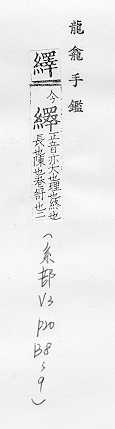 龍龕手鑑
繹
今
繹
正音亦大也理也終也
長也陳也卷紓也二
(系部
V3
p20
B8
s
9)